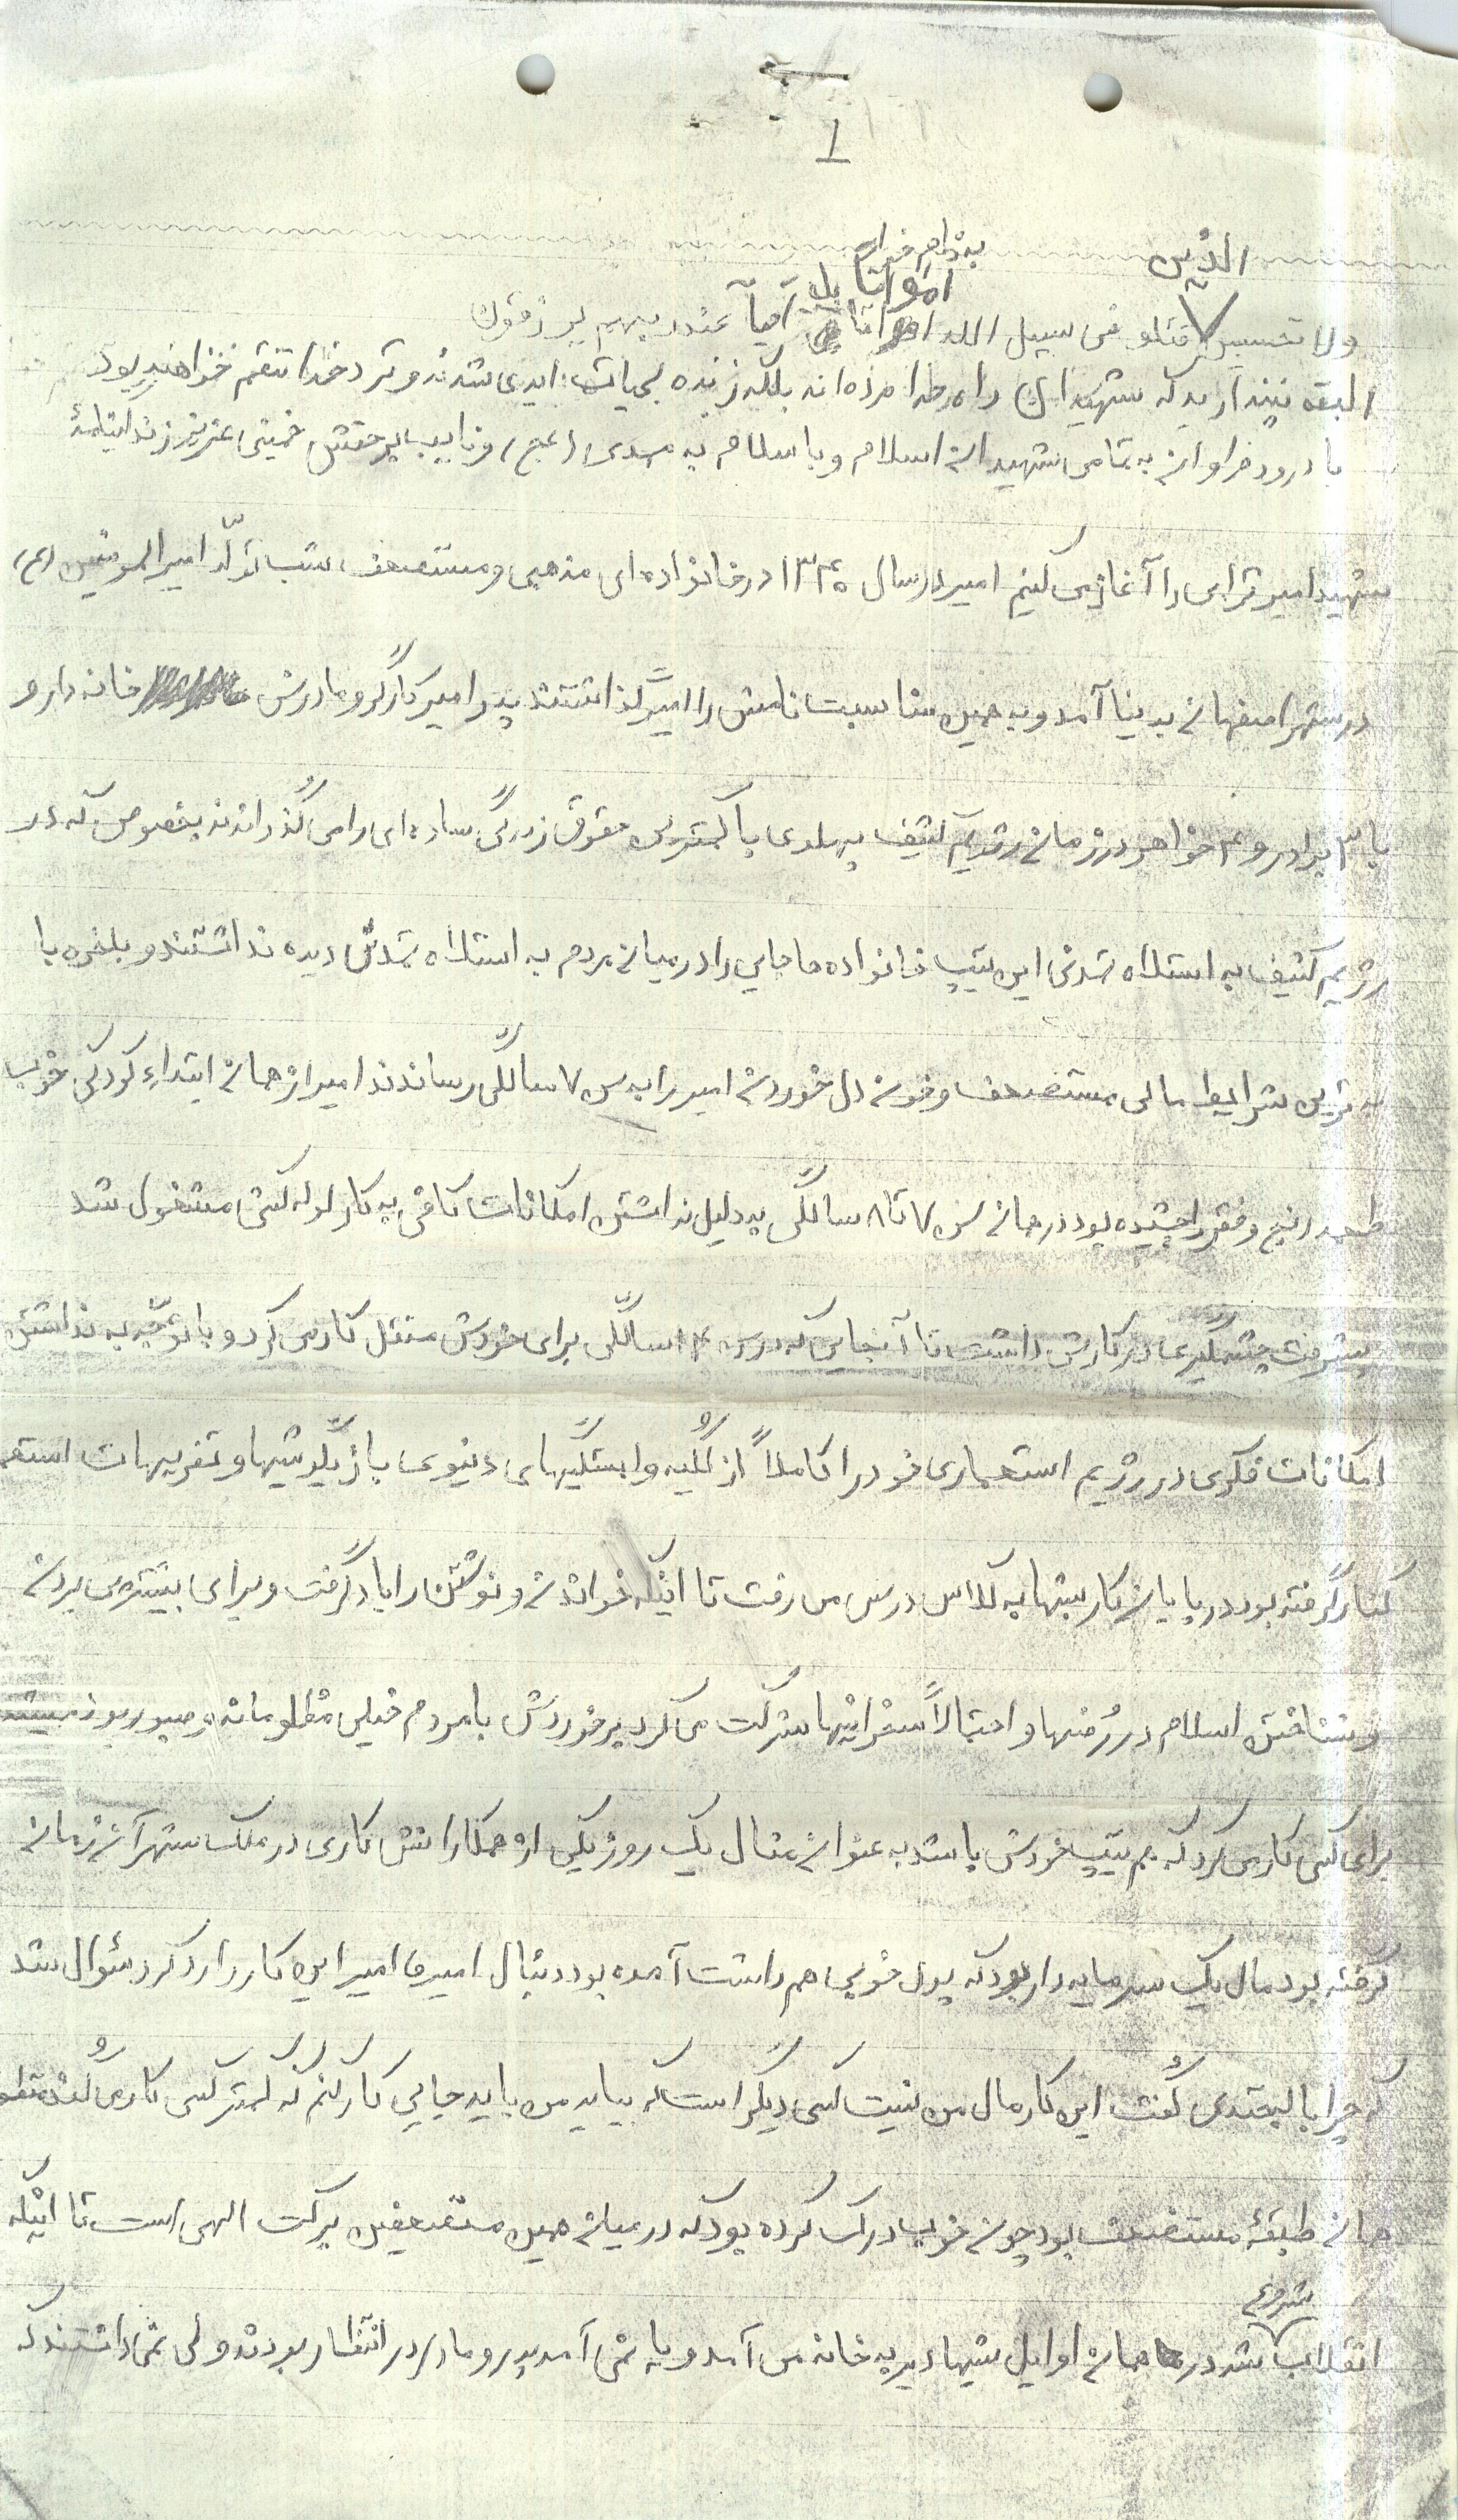 1
به نام خدا
ولا تحسبن الذین قتلو فی سبیل الله امواتا بل احیآ عند ربهم یرزقون
البته نپندارید که شهیدان راه خدا مرده‌اند بلکه زنده بحیات ابدی شدند و نزد خدا متنعم خواهند بود
با درود فراوان به تمامی شهیدان اسلام و با سلام به مهدی (عج) و نایب برحقش خمینی عزیز زندگینامهٔ
شهید امیر ترابی را آغاز می کنیم امیر در سال ۱۳۴۰ در خانواده‌ای مذهبی و مستضعف شب تولّد امیرالمومنین (ع)
در شهر اصفهان بدنیا آمد و به همین مناسبت نامش را امیر گذاشتند پدر امیر کارگر و مادرش خانه دار و
با ۳ برادر و ۴ خواهر در زمان رژیم کثیف پهلوی با کمترین حقوق زندگی ساده‌ای را می گذراندند بخصوص که در
رژیم کثیف به اسطلاه تمدنی این تیپ خانواده ها جایی را در میان مردم به اسطلاه تمدنش دیده نداشتند و بلخره با
ترین شرایط مالی مستضعف و خون دل خوردن امیر را به سن ۷ سالگی رساندند امیر از همان ابتداء کودکی خوب
طعم رنج و فقر را چشیده بود در همان سن ۷ تا ۸ سالگی به دلیل نداشتن امکانات کافی به کار لوله کشی مشغول شد
پیشرفت چشمگیری در کارش داشت تا آنجایی که در سن ۱۴ سالگی برای خودش مستقل کار می کرد و با توّجه به نداشتن
امکانات فکری در رژیم استعماری خود را کاملاً از کُلیه وابستگیهای دنیوی با زیگرشیها و تفریهات استعـ
کنار گرفته بود در پایان کار شبها به کلاس درس می رفت تا اینکه خواندن و نوشتن را یاد گرفت و برای بیشتر پی بردن
و شناختن اسلام در رُضه‌ها و احتمالاً سخنرانیها شرکت می کرد برخوردش با مردم خیلی مظلومانه و صبور بود همیشه
برای کسی کار می کرد که هم تیپ خودش باشد به عنوان مثال یک روز یکی از همکارانش کاری در ملک شهر آن زمان
گرفته بود مال یک سرمایه دار بود که پول خوبی هم داشت آمده بود دنبال امیر امیر این کار را رد کرد سئوال شد
که چرا با لبخندی گفت این کار مال من نیست کسی دیگر است که بیاید من باید جایی کار کنم که کمتر کسی کار می کند
همان طبقهٔ مستضعف بود چون خوب درک کرده بود که در میان همین مستضعفین برکت الهی است تا اینکه
انقلاب شروع شد در همان اوایل شبها دیر به خانه می آمد و یا نمی آمد پدر و مادر در انتظار بودند ولی نمی دانستند که